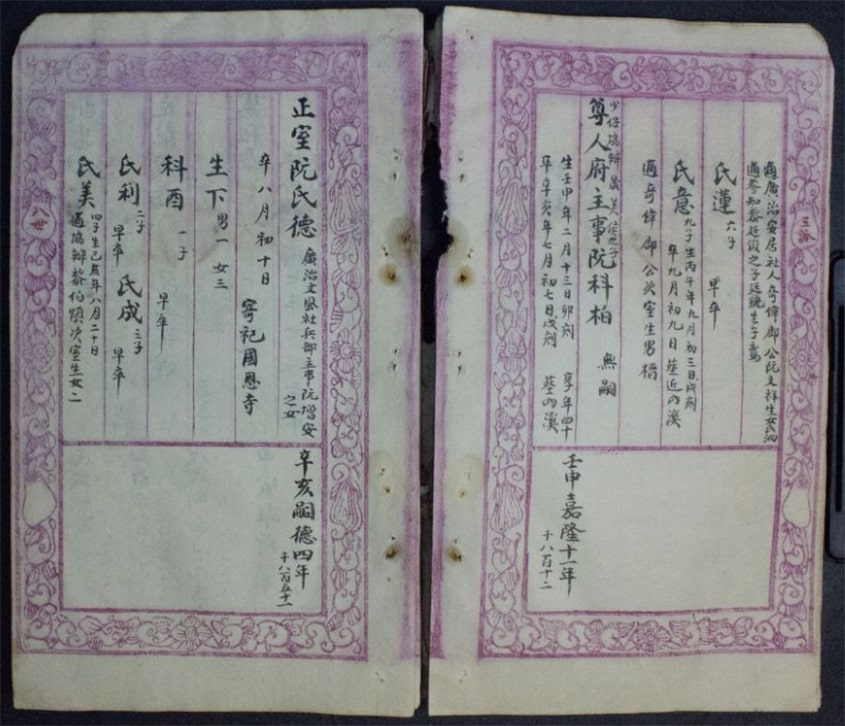 三派
適廣治安居社人奇偉郡公阮文祥生女氏泗
適參知黎廷頎之子廷統生子
氏蓮 六子 早卒
氏意 九子生丙午年九月初三日戌刻
卒九月初九日葬近內漢
適奇偉郡公次室生男檣
尊人府主事阮科柏 無嗣
生壬申年二月十三日卯刻 享年四十
卒辛亥年七月初七日戌刻 葬內漢
壬申嘉隆十一年
千八百十二
正室阮氏德 廣治文風社兵部主事阮增安之女
卒八月初十日 寄祀國恩寺
辛亥嗣德四年
千八百五十一
生下 男一 女三
科酉 一子 早卒
氏利 二子 早卒 氏成 三子 早卒
氏美 四子生己亥年八月二十日
適協辦黎伯 次室生女二
八世